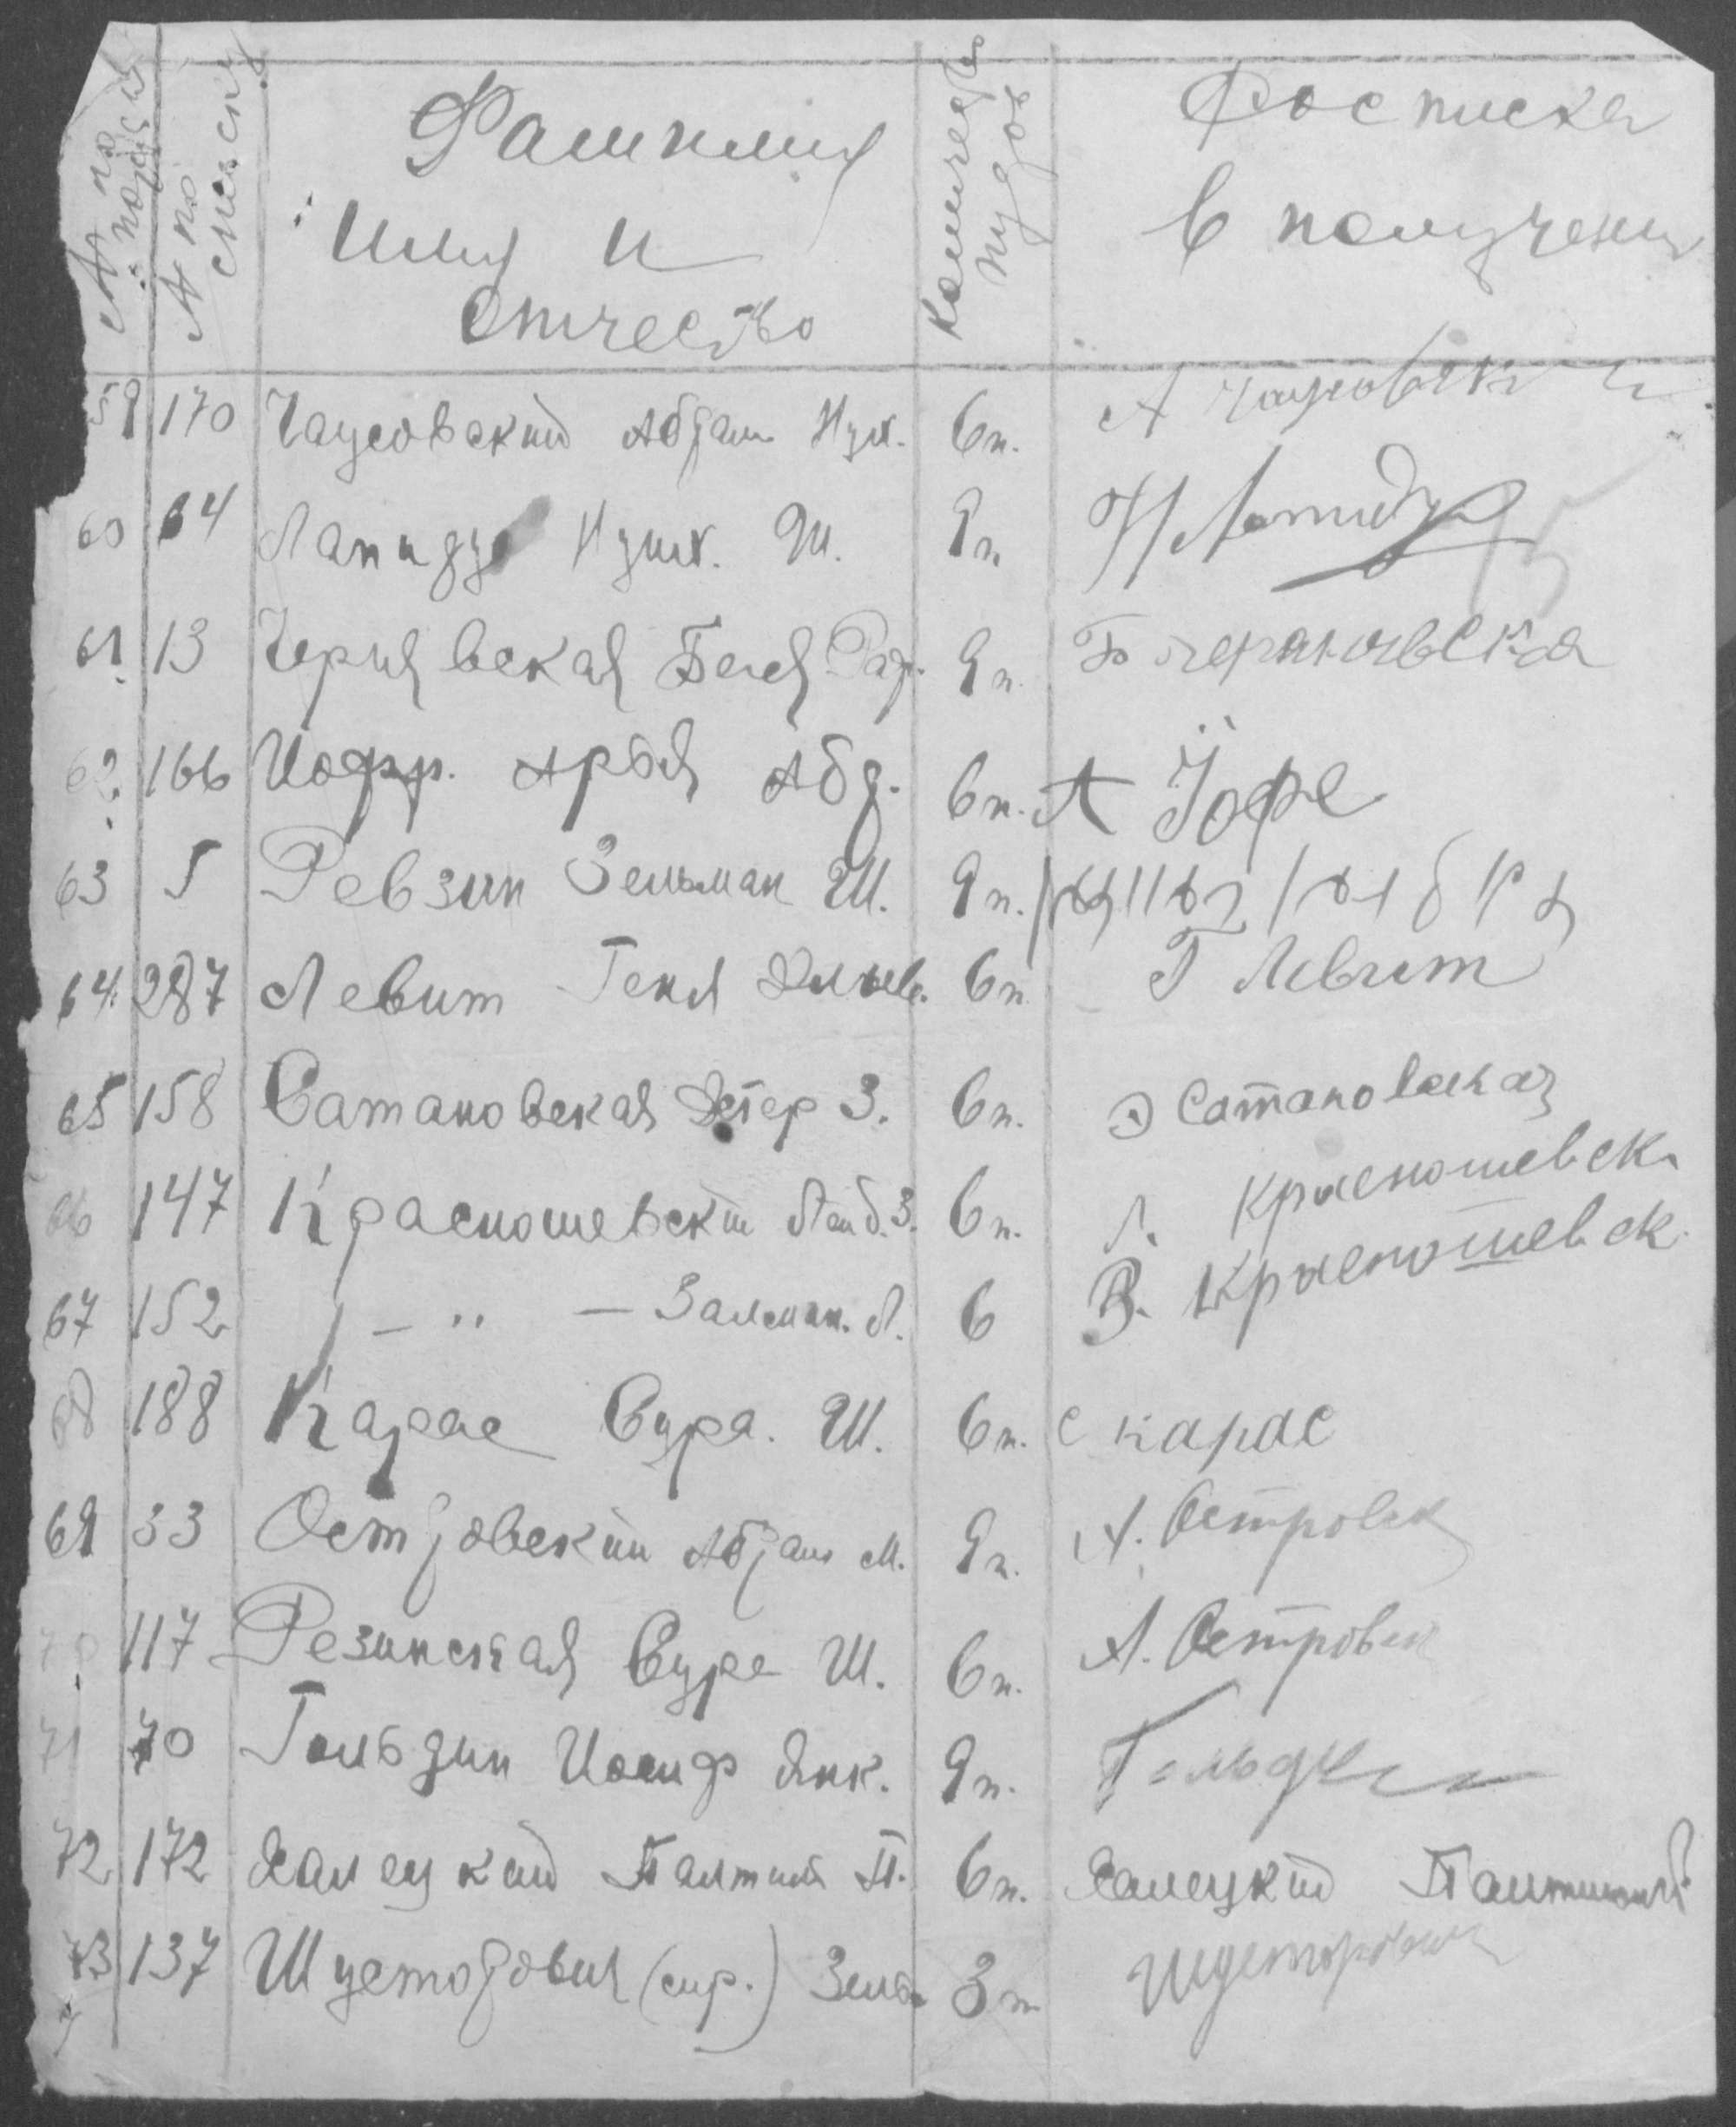 № по поряд.
№ по списку
Фамилия
Имя и
Отчество
Количество
пудов
Росписка
в получении
59 170 Чаусовский Абрам Нух. 6п. А Чаусовский
60 64 Лапидус Нухим. Ш. 9п. Н Лапидус
61 13 Чернявская Бейля 9п. Б
62 166 Иофф. Арья Абр. 6п. А Йофе
63 5 Ревзин Зельман Ш. 9п.
64 287 Левит Геня 6п. Г Левит
65 158 Сатановская Эстер З. 6п. Э Сатановская
66 147 Красношевский Лейб. З. 6п. Л. Красношевск
67 152 — „ — Залман. Л. 6 З. Красношевск.
68 188 Карас Сура. Ш. 6п. С карас
69 33 Островский Абрам М. 9п. А. Островск
70 117 Резинская Сура Ш. 6п. А. Островск
71 70 Гольдин Иосиф Янк. 9п. Гольдин
72 172 Халецкий Палтий П. 6п. Халецкий
73 137 Шусторович (сир.) Зельм 3п